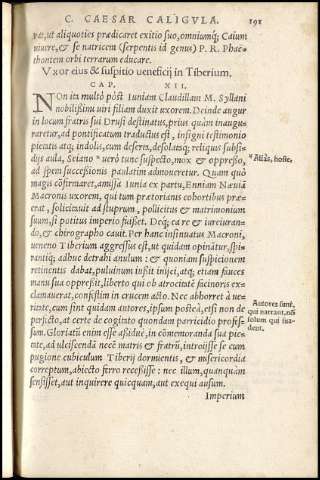 C. CAESAR CALIGVLA. 191
ret, ut aliquoties prædicaret exitio suo, omniumq; Caium
uiuere, & se natricem (serpentis id genus) P. R. Phae-
thontem orbi terrarum educare.
Vxor eius & suspitio ueneficij in Tiberium.
CAP. XII.
NOn ita multò pòst Iuniam Claudillam M. Syllani
nobilissimi uiri filiam duxit uxorem. Deinde augur
in locum fratris sui Drusi destinatus, prius quàm inaugu-
raretur, ad pontificatum traductus est, insigni testimonio
pietatis atq; indolis, cum deserta, desolataq; reliquis subsi-
dijs aula, Seiano * uerò tunc suspecto, mox & oppresso,
* Aliâs, hoste.
ad spem successionis paulatim admoueretur. Quam quò
magis cõfirmaret, amissa Iunia ex partu, Enniam Næuiã
Macronis uxorem, qui tum prætorianis cohortibus præe-
rat, solicitauit ad stuprum, pollicitus & matrimonium
suum, si potitus imperio fuisset. Deq; ea re & iureiuran-
do, & chirographo cauit. Per hanc insinuatus Macroni,
ueneno Tiberium aggressus est, ut quidam opinãtur, spi-
rantiq; adhuc detrahi anulum: & quoniam suspicionem
retinentis dabat, puluinum iußit inijci, atq; etiam fauces
manu sua oppreßit, liberto qui ob atrocitatẽ facinoris ex-
clamauerat, confestim in crucem acto. Nec abhorret à ue-
ritate, cum sint quidam autores, ipsum posteà, etsi non de
Autores sunt,
qui narrant, nõ
solum qui sua-
dent.
perfecto, at certe de cogitato quondam parricidio profes-
sum. Gloriatũ enim esse aßiduè, in cõmemoranda sua pie-
tate, ad ulciscendã necẽ matris & fratrũ, introijsse se cum
pugione cubiculum Tiberij dormientis, & misericordia
correptum, abiecto ferro recesisse: nec illum, quanquàm
sensisset, aut inquirere quicquam, aut exequi ausum.
Imperium